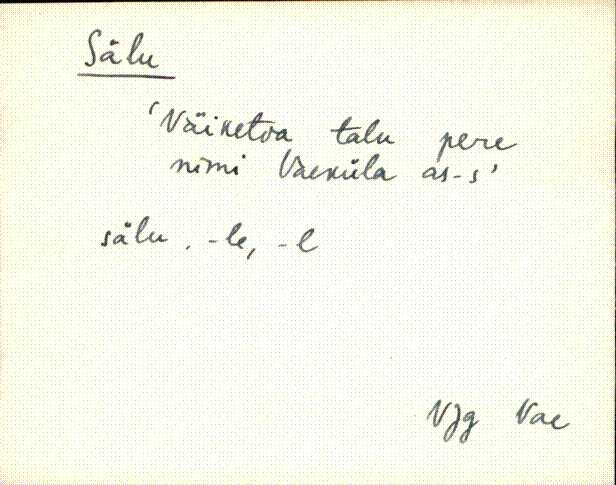 Sälu
'Väiketoa talu pere
nimi Vaeküla as-s'
sälu, -le, -l
VJg Vae